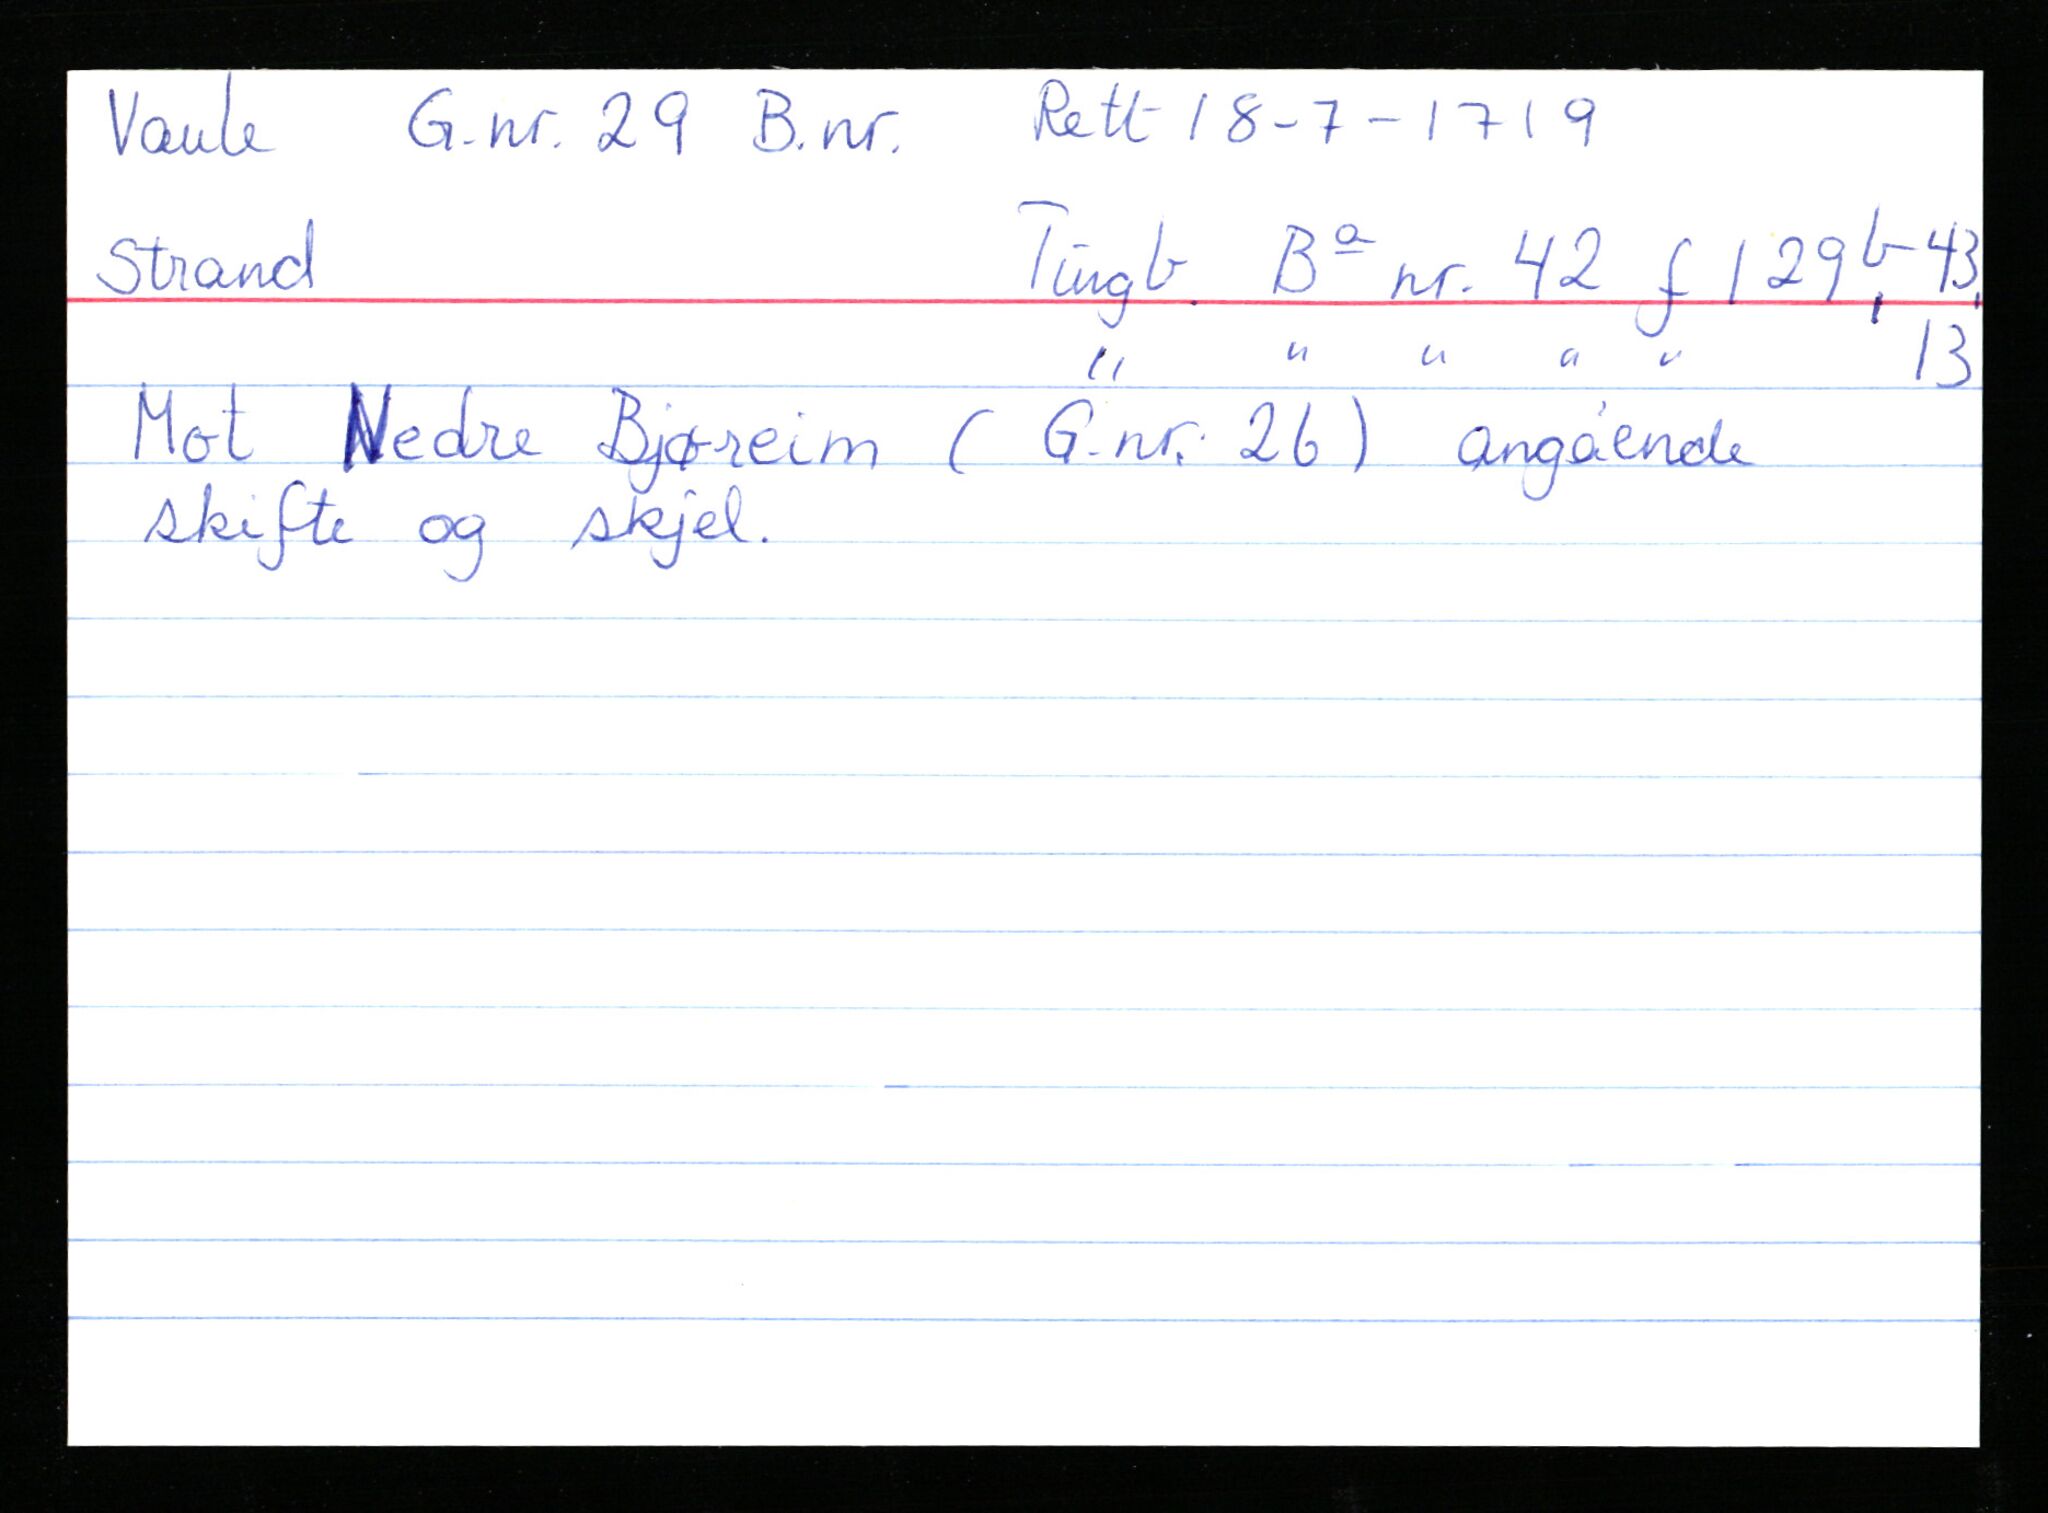 Vaule G.nr. 29 B.nr. Rett 18-7-1719
Strand Tingb. Bª nr. 42 f 129b, 43,
" " " " " 13
Mot Nedre Bjøreim ( G.nr. 26) angående
skifte og skjel.